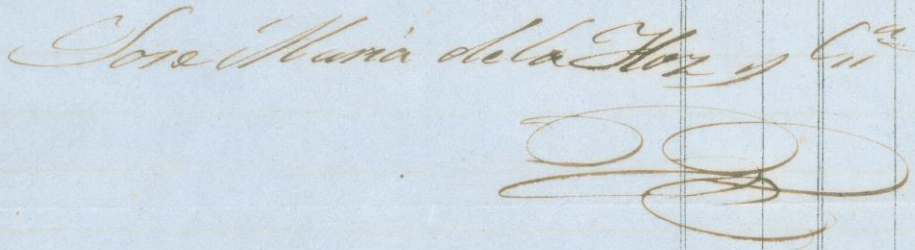 Jose Maria de la Hoz y Ciia